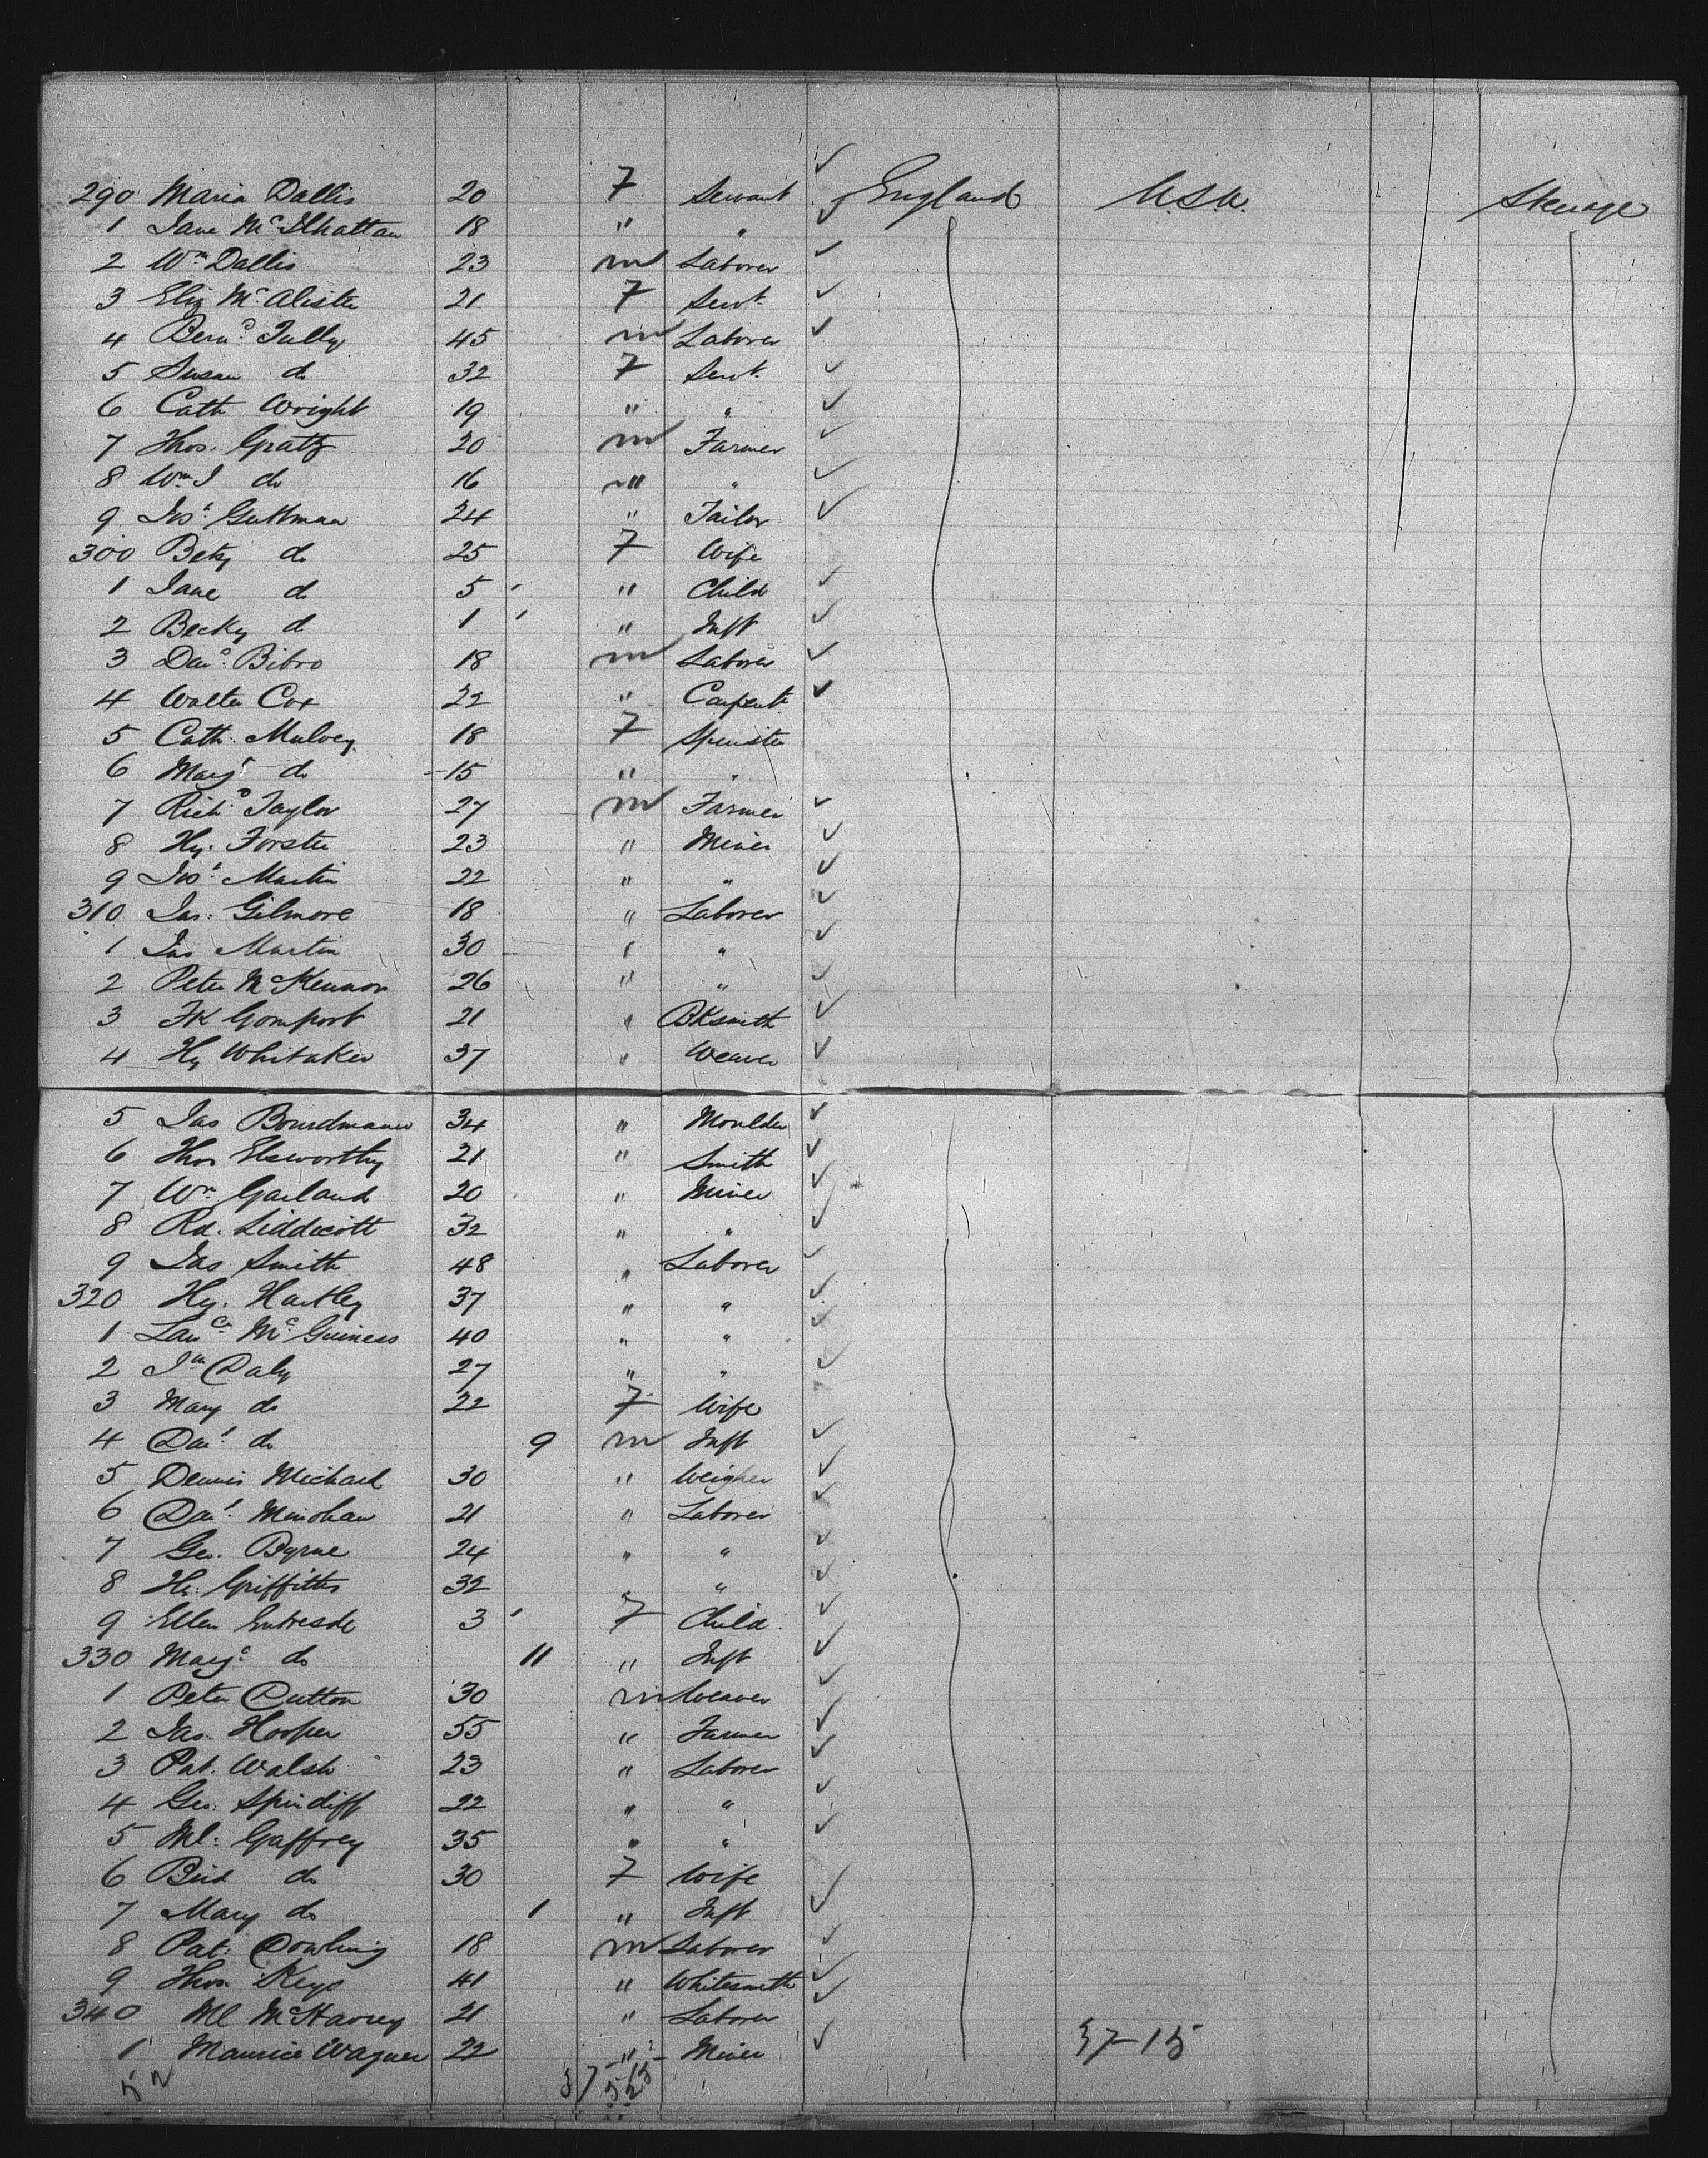 290 Maria Dallis 20 F Servant England U.S.A. Steerage
1 Jane McIlhattan 18 " "
2 Wm Dallis 23 M Laborer
3 Eliz McAlister 21 F Servt.
4 Bernd Tully 45 M Laborer
5 Susan do 32 F Servt.
6 Cath Wright 19 " "
7 Thos. Gratz 20 M Farmer
8 Wm J do 16 " "
9 Josh Guttman 24 " Tailor
300 Betsy do 25 F Wife
1 Jane do 5 " Child
2 Becky do 1 " Inft
3 Davd. Bibro 18 M Laborer
4 Walter Cox 22 " Carpentr
5 Cath. Mulvey 18 F Spinster
6 Margt do 15 " "
7 Richd Taylor 27 M Farmer
8 Hy. Forster 23 " Miner
9 Josh Martin 22 " "
310 Jas. Gilmore 18 " Laborer
1 Jas Martin 30 " "
2 Peter McKennon 26 " "
3 Fk Gomport 21 " Bksmith
4 Hy Whitaker 37 " Weaver
5 Jas 34 " Moulder
6 Thos Elsworthy 21 " Smith
7 Wm Garland 20 " Miner
8 Rd. Liddicott 32 " "
9 Jas Smith 48 " Laborer
320 Hy. Hartley 37 " "
1 Lauce McGuiness 40 " "
2 Jn Daly 27 " "
3 Mary do 22 F Wife
4 Danl do 9 M Inft
5 Dennis Michael 30 " Weigher
6 Danl 21 " Laborer
7 Geo. Byrne 24 " "
8 Hy. Griffiths 32 " "
9 Ellen 3 F Child
330 Margt do 11 " Inft
1 Peter Dutton 30 M Weaver
2 Jas. Hooper 55 " Farmer
3 Pat. Walsh 23 " Laborer
4 Geo. Spindiff 22 " "
5 Ml. Gaffrey 35 " "
6 Brid do 30 F Wife
7 Mary do 1 " Inft
8 Pat. Dowling 18 M Laborer
9 Thos Keys 41 " Whitesmith
340 Ml McHarvey 21 " Laborer
1 Maurice Wagner 22 " Miner 37-15
52 37 15
52